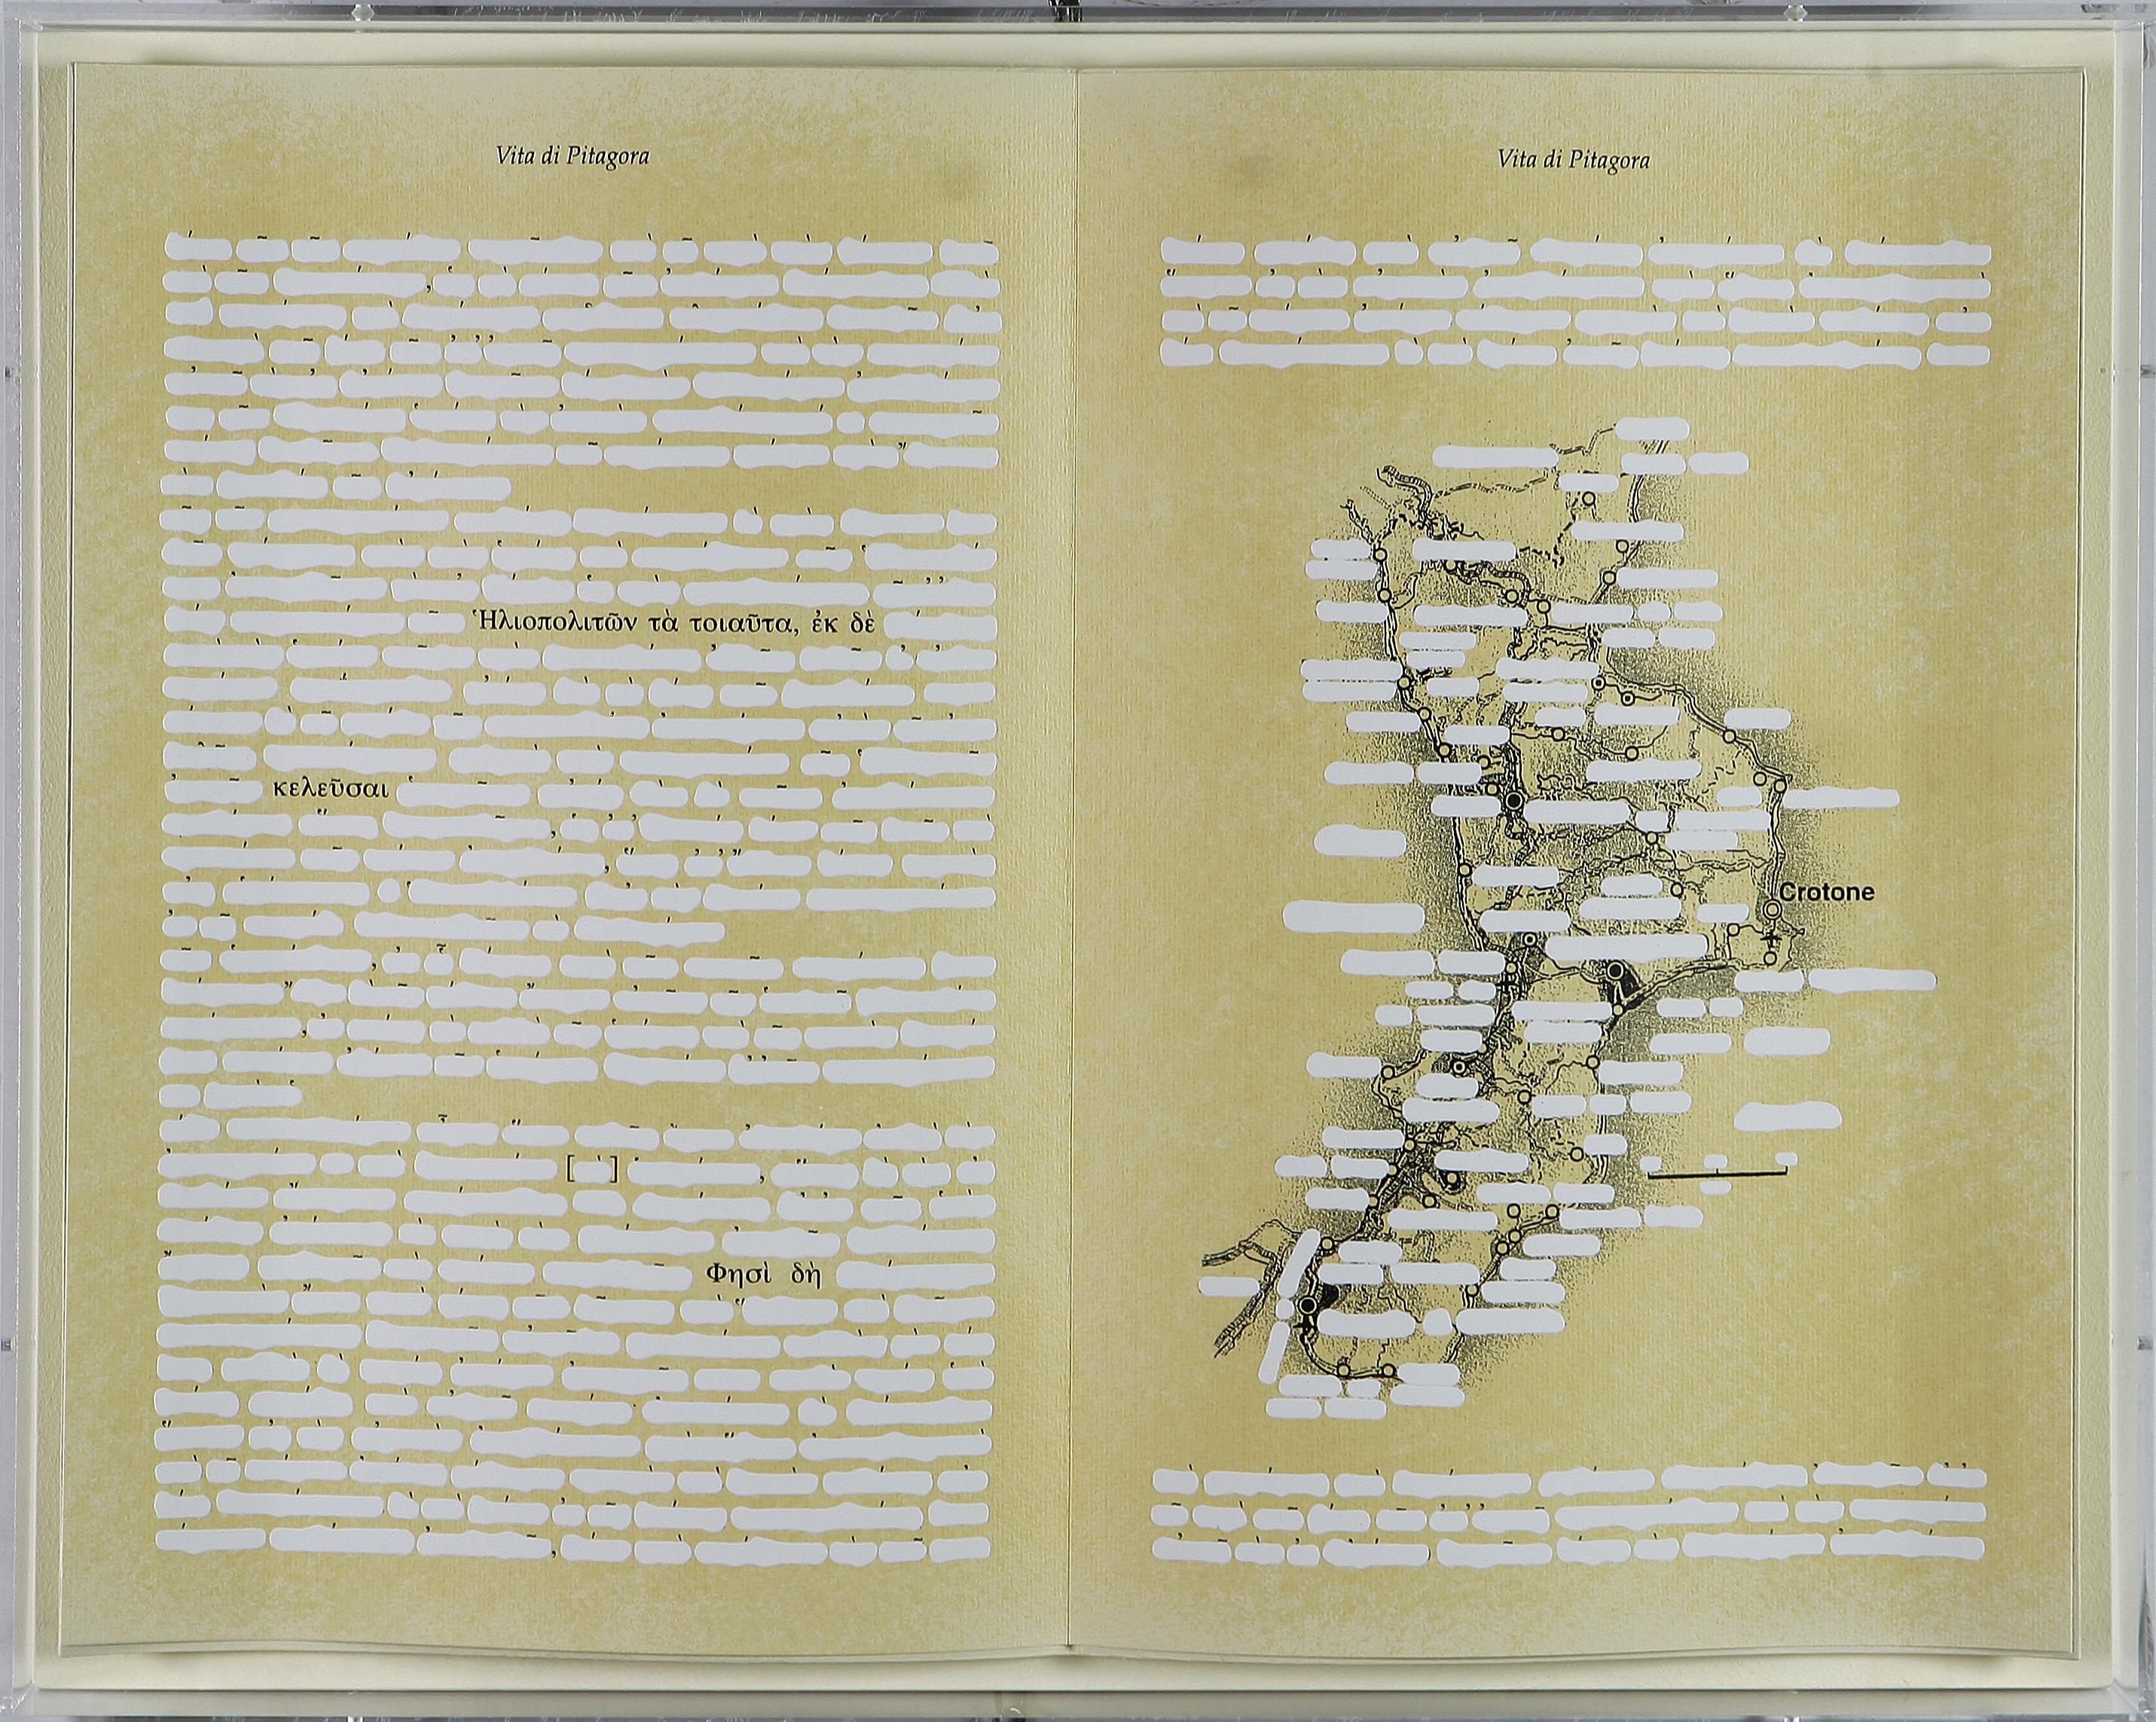 Vita di Pitagora
Ἡλιοπολιτῶν τὰ τοιαῦτα, ἐκ δὲ
κελεῦσαι
[ ]
Φησὶ δὴ
Vita di Pitagora
Crotone